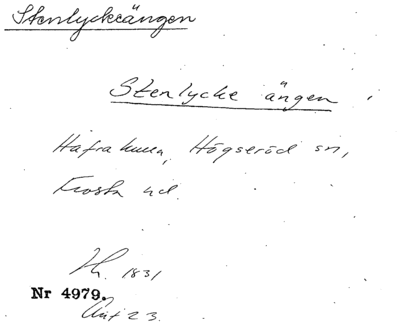 Stenlyckeängen
Stenlycke ängen
Hafrakulla, Högseröd sn,
Frosta hd.
1831
Nr 4979.
Akt 23.